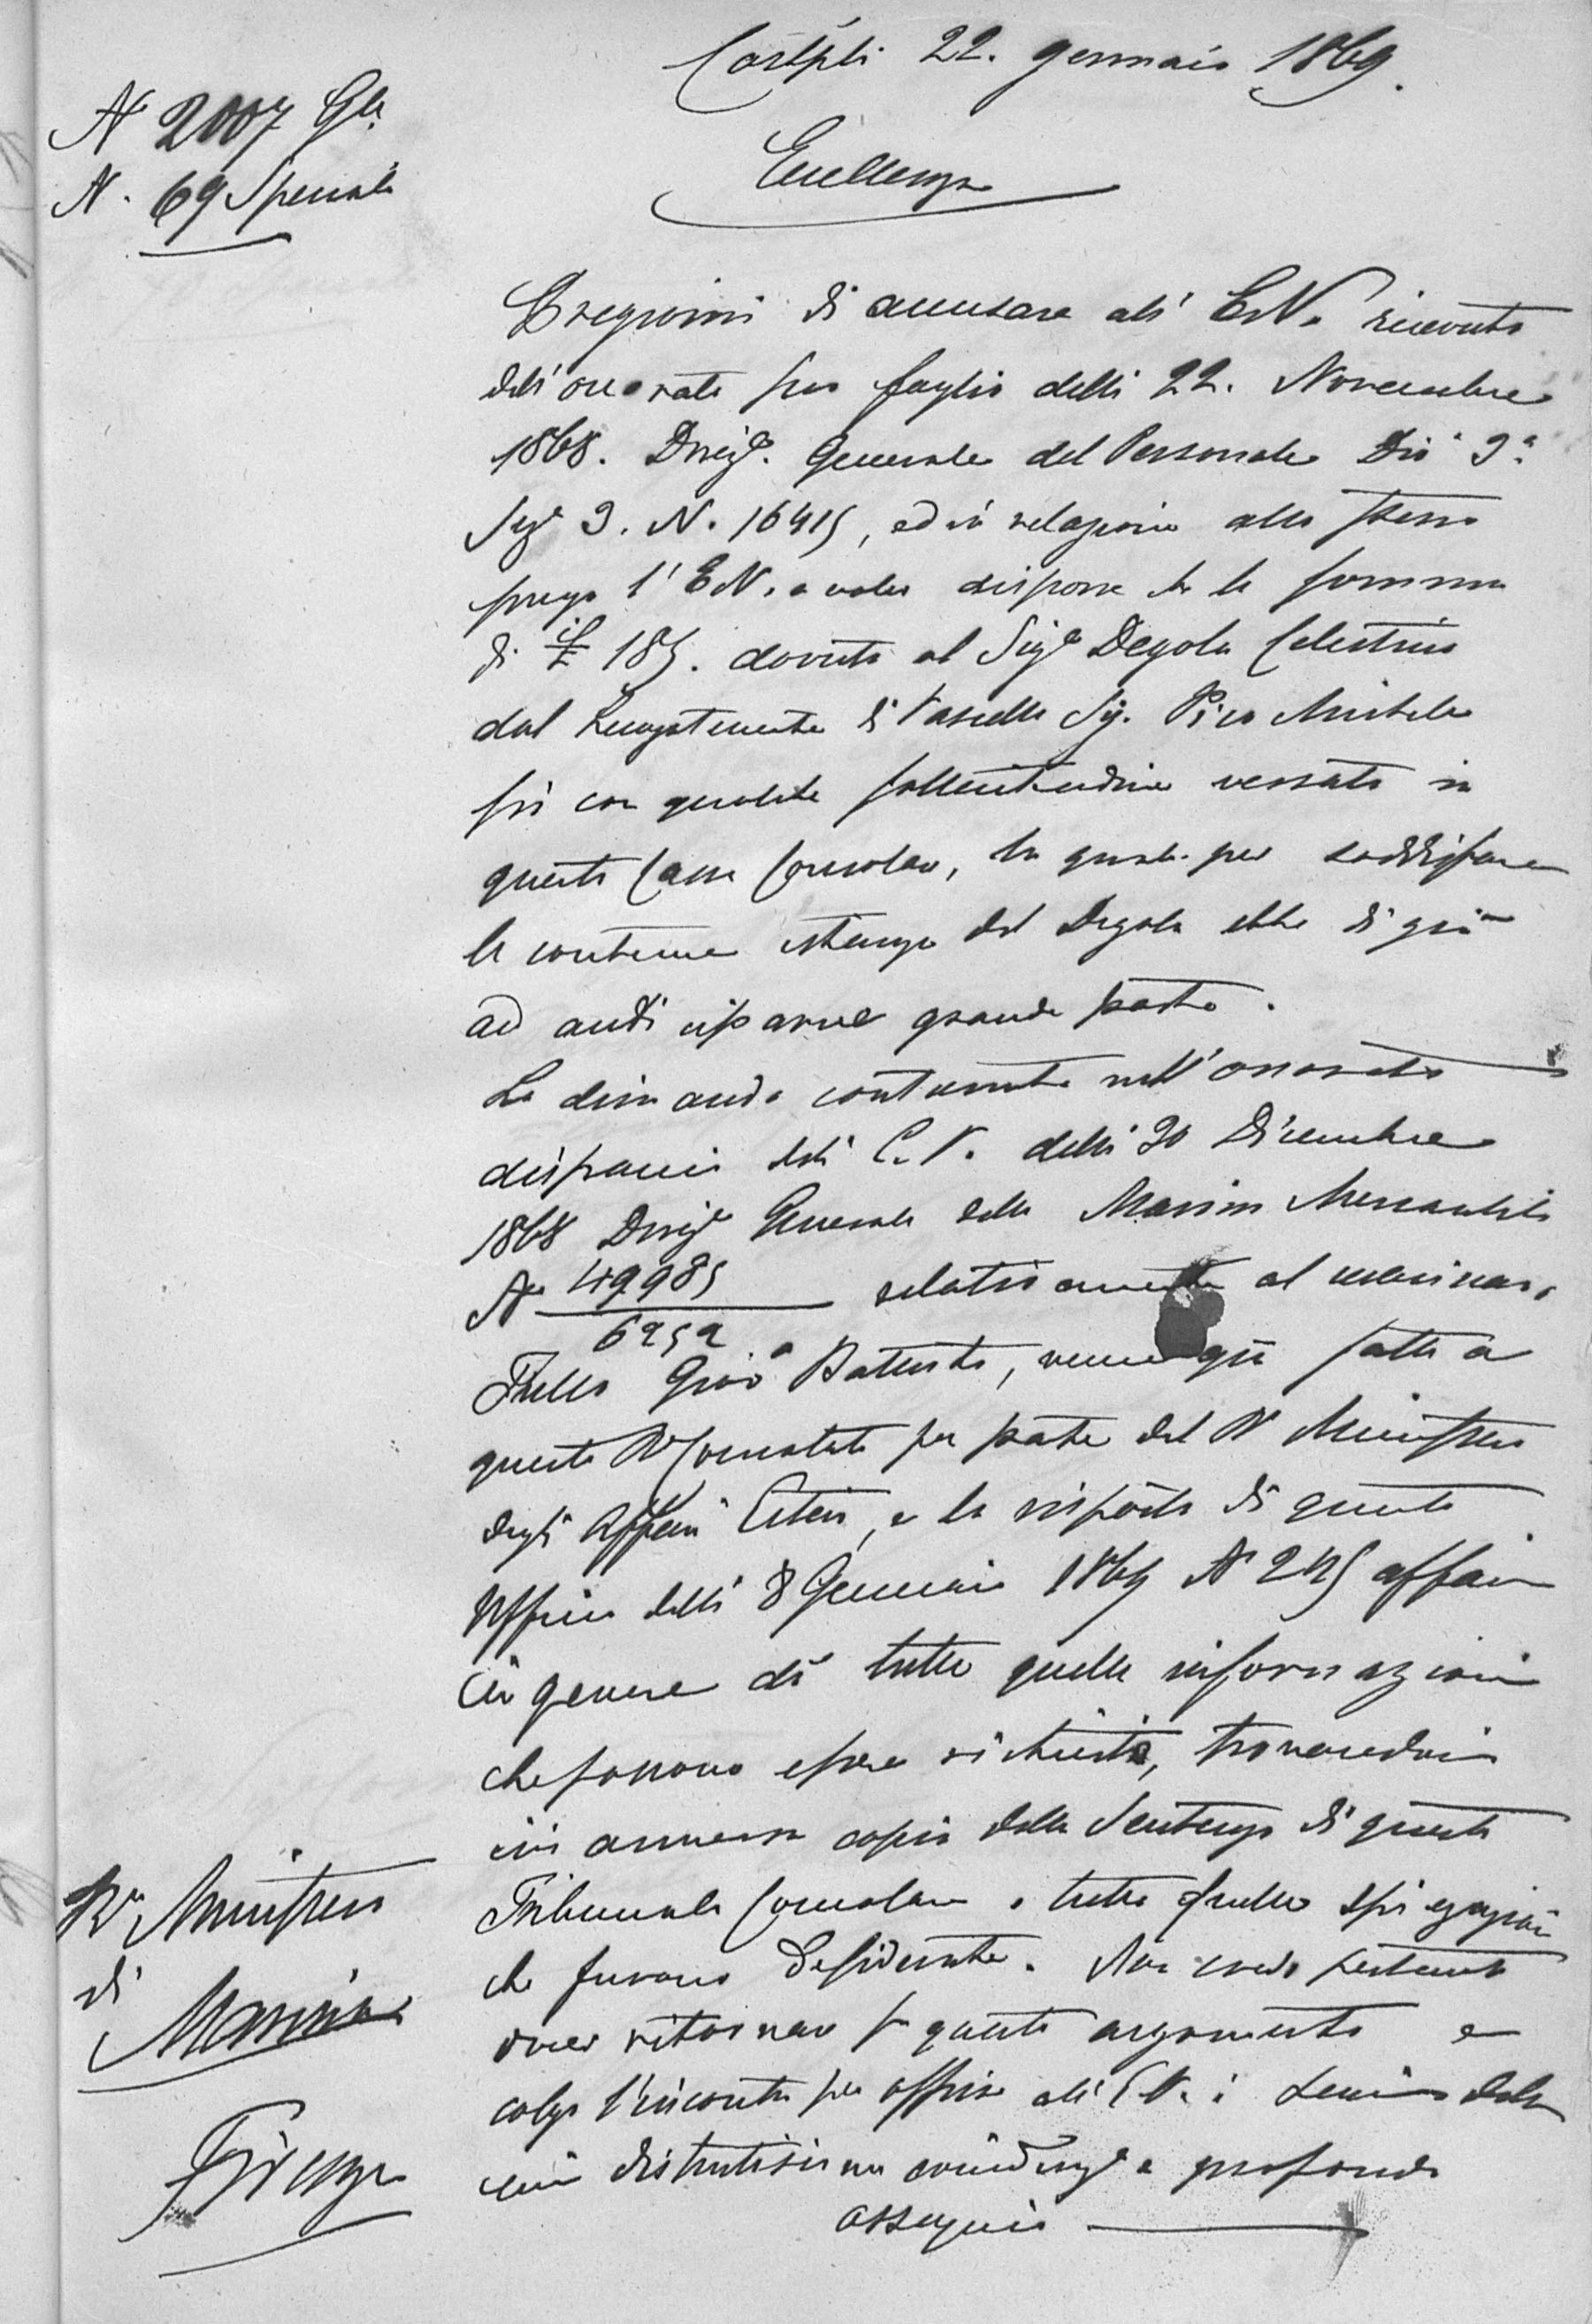 Costpli 22. gennaio 1869.
N 2007 Gle
N. 69 Speciale
Eccellenza
Pregiomi di accusare all' E.V. ricevuta
dell'onorato suo foglio delli 22. Novembre
1868. Direz.e Generale del Personale Div 3a
Sez 3. N. 16415, ed in relazione allo stesso
prego l'E.V. a voler disporre che la somma
di £ 185. dovuta al Sige Degola Celestino
dal Luogotenente di Vascello Sig. Pico Michele
sii con qualche sollecitudine versata in
questa Cassa Consolare, la quale per soddisfare
le continue istanze del Degola ebbe di già
ad anticiparne grande parte.
La dimanda contenuta nell'onorato
dispaccio dell' E.V. delli 30 Dicembre
1868 Direz.e Generale della Marina Mercantile
No 49985 relativamente al marinaro
6252
Tullo Giov Battista, venne già fatta a
questo Ro Consolato per parte del Ro Ministero
degli Affari Esteri, e la risposta di questo
Ufficio delli 8 Gennaio 1869 N 245 affari
in genere dà tutte quelle informazioni
che possono essere richieste, trovandosi
ivi annessa copia della Sentenza di questo
Tribunale Consolare e tutte quelle spiegazioni
che furono desiderate. Non credo pertanto
dover ritornare su questo argomento e
colgo l'incontro per offrire all' E.V. i sensi della
mia distintissima considerazne e profondo
ossequio
Ro Ministero
di
Marina
Firenze